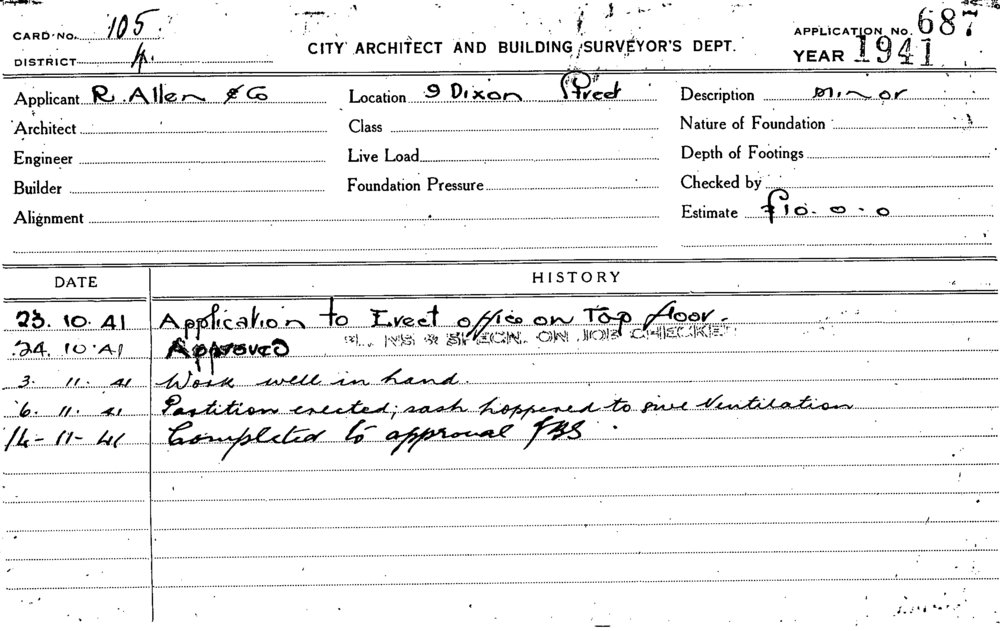 CARD No. 105.
APPLICATION No. 687
DISTRICT
CITY ARCHITECT AND BUILDING SURVEYOR'S DEPT.
YEAR 1941
Applicant R. Allen & Co
Location 9 Dixon Street
Description Minor
Architect
Class
Nature of Foundation
Engineer
Live Load
Depth of Footings
Builder
Foundation Pressure
Checked by
Alignment
Estimate £10. 0. 0
DATE
HISTORY
23. 10. 41 Application to Erect office on Top floor.
24. 10. 41 Approved SPECN. ON JOB CHECKED
3. 11. 41 Work well in hand.
6. 11. 41 Partition erected; sash hoppered to give Ventilation
14-11-41 Completed to approval